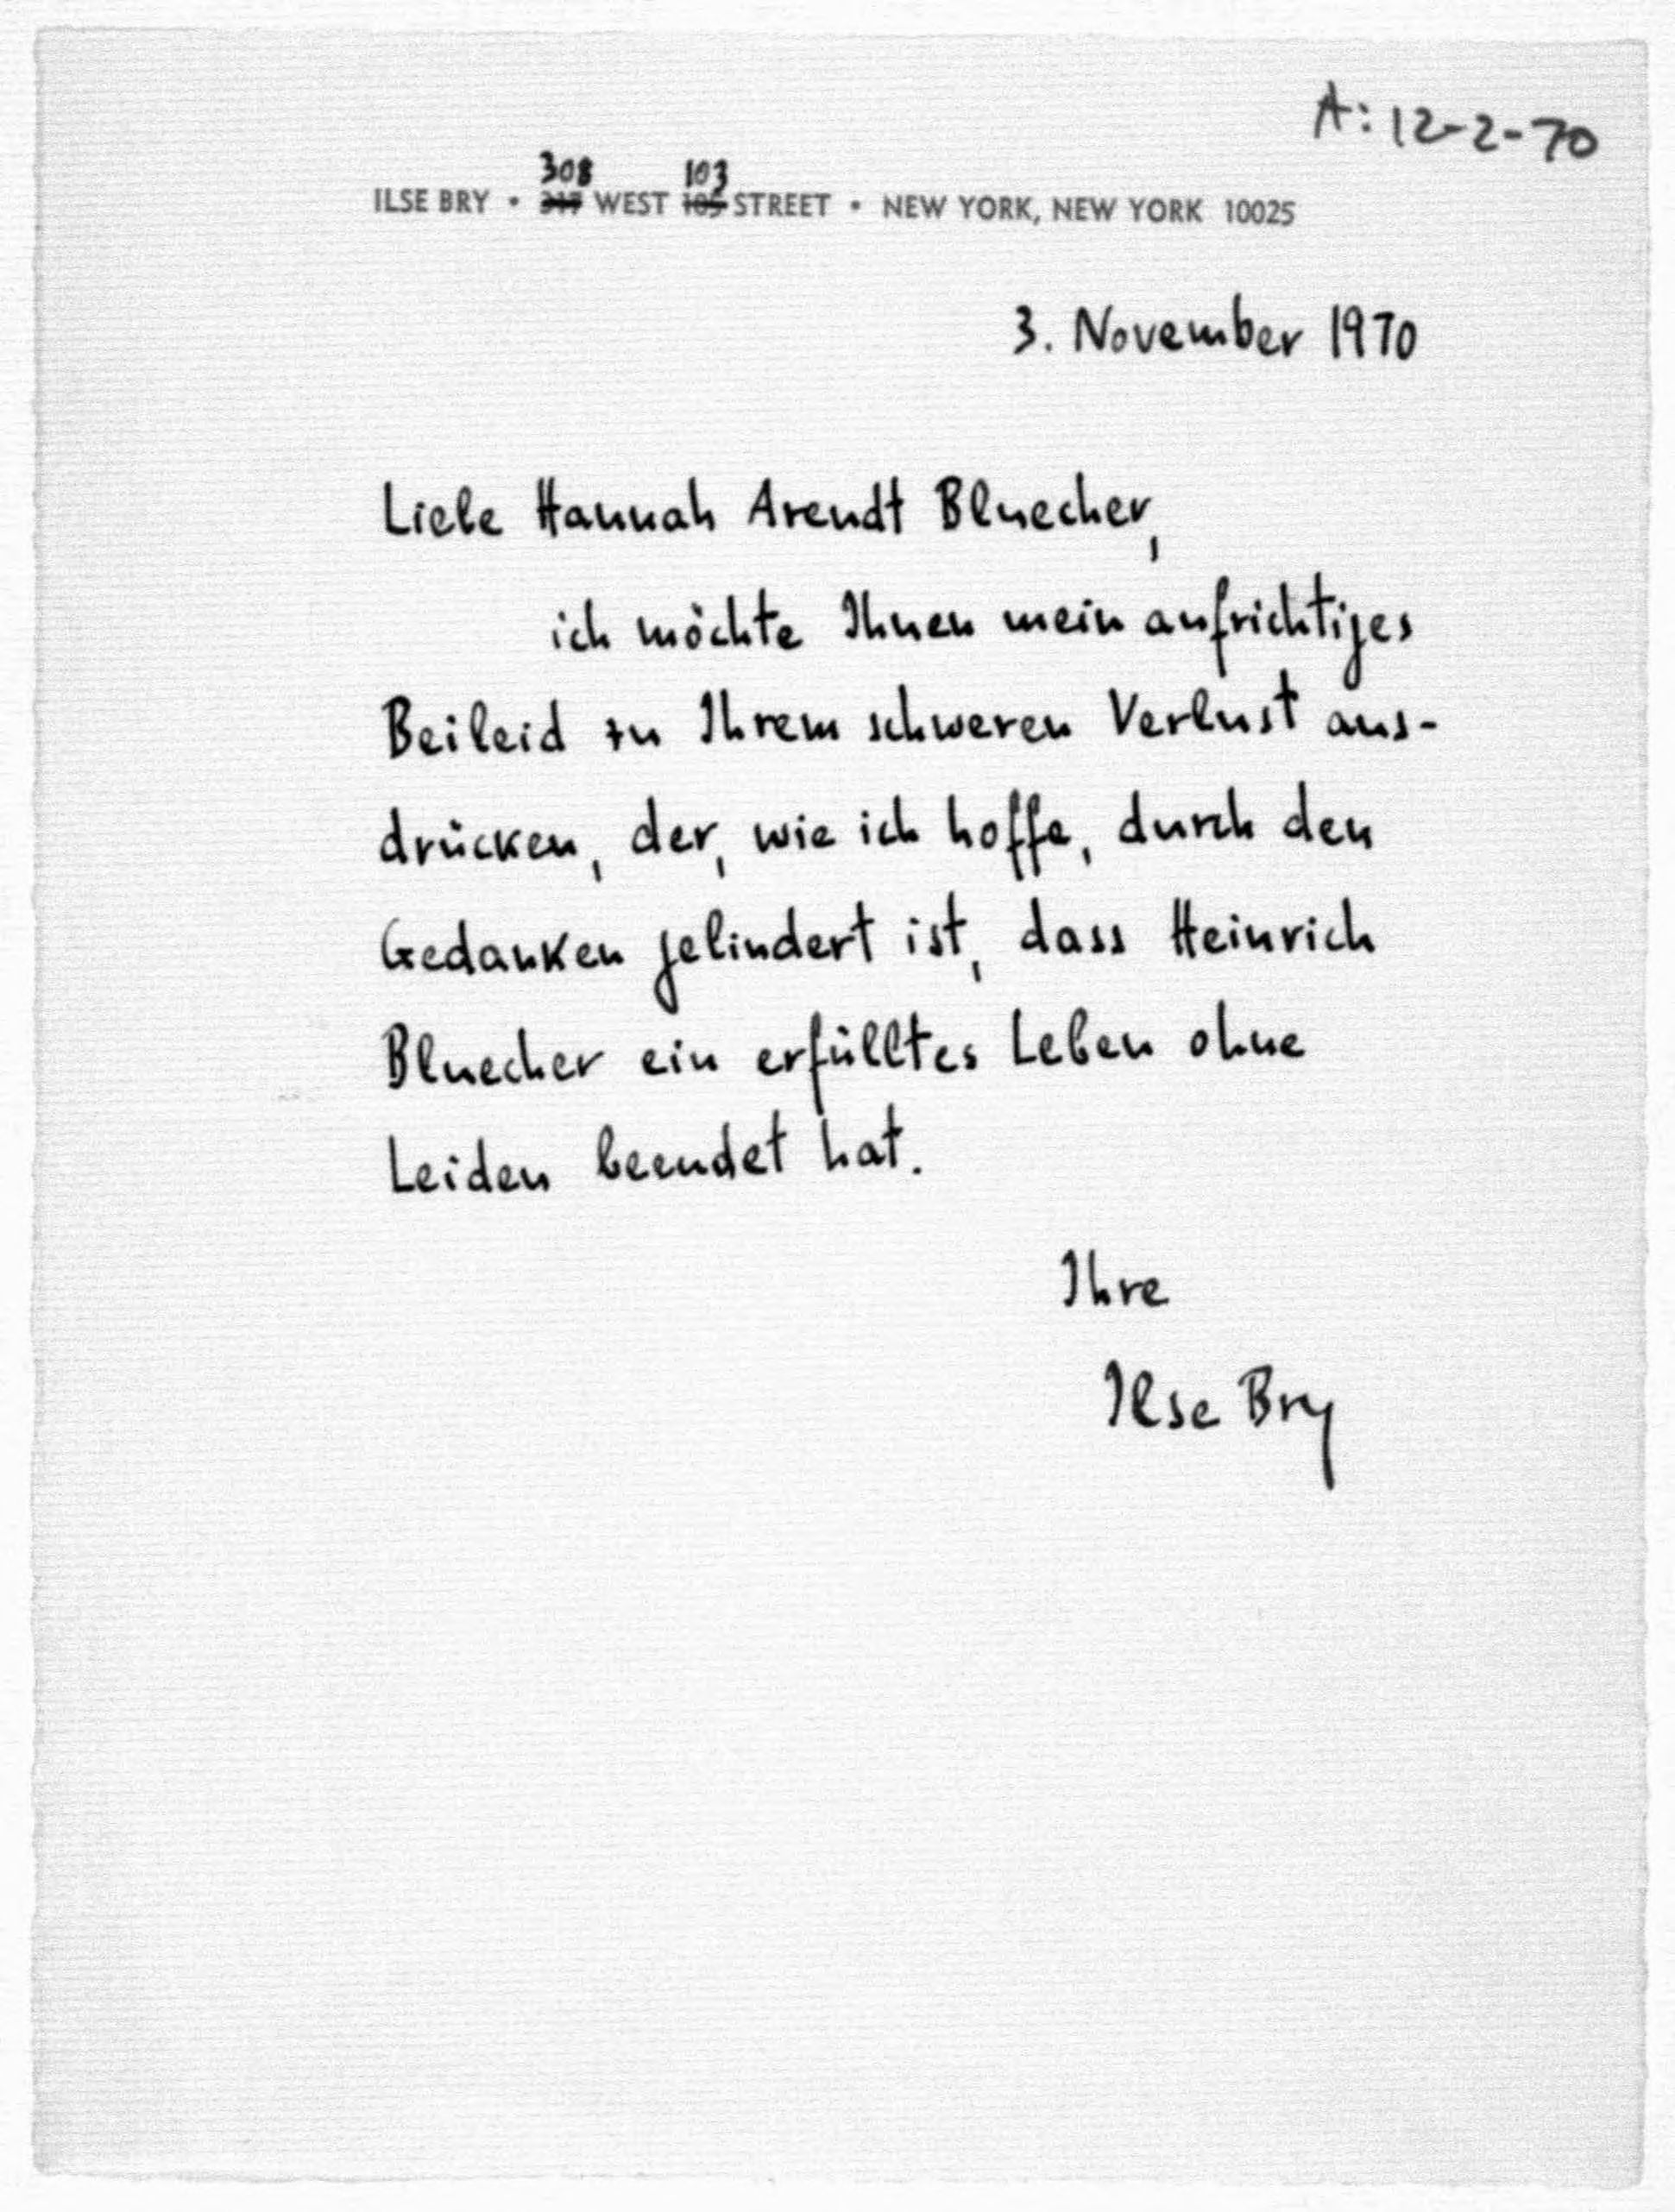 A: 12-2-70
308 103
ILSE BRY • 317 WEST 105 STREET • NEW YORK, NEW YORK 10025
3. November 1970
Liebe Hannah Arendt Bluecher,
ich möchte Ihnen mein aufrichtiges
Beileid zu Ihrem schweren Verlust aus-
drücken, der, wie ich hoffe, durch den
Gedanken gelindert ist, dass Heinrich
Bluecher ein erfülltes Leben ohne
Leiden beendet hat.
Ihre
Ilse Bry